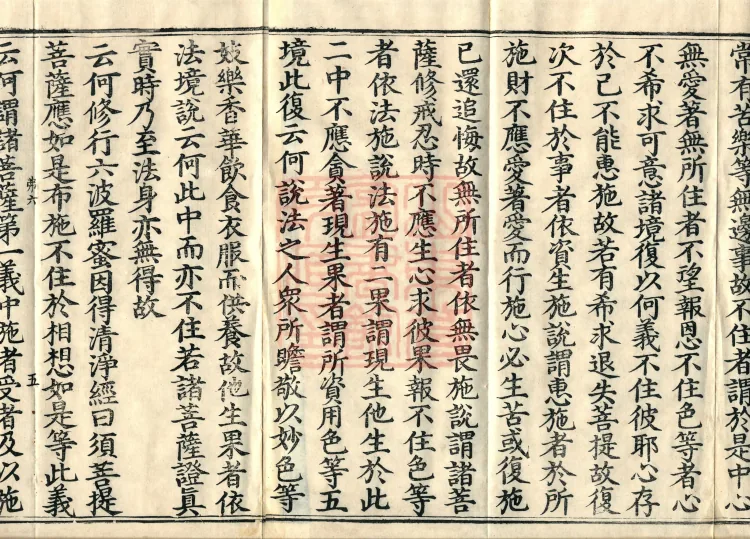 常有苦樂等無邊事故不住者謂於是中心
無愛著無所住者不望報恩不住色等者心
不希求可意諸境復以何義不住彼耶心存
於己不能惠施故若有希求退失菩提故復
次不住於事者依資生施說謂惠施者於所
施財不應愛著愛而行施心必生苦或復施
已還追悔故無所住者依無畏施說謂諸菩
薩修戒忍時不應生心求彼果報不住色等
者依法施說法施有二果謂現生他生於此
二中不應貪著現生果者謂所資用色等五
境此復云何說法之人眾所瞻敬以妙色等
妓樂香華飲食衣服而供養故他生果者依
法境說云何此中而亦不住若諸菩薩證真
實時乃至法身亦無得故
云何修行六波羅蜜因得清淨經曰須菩提
菩薩應如是布施不住於相想如是等此義
弟六
五
云何謂諸菩薩第一義中施者受者及以施